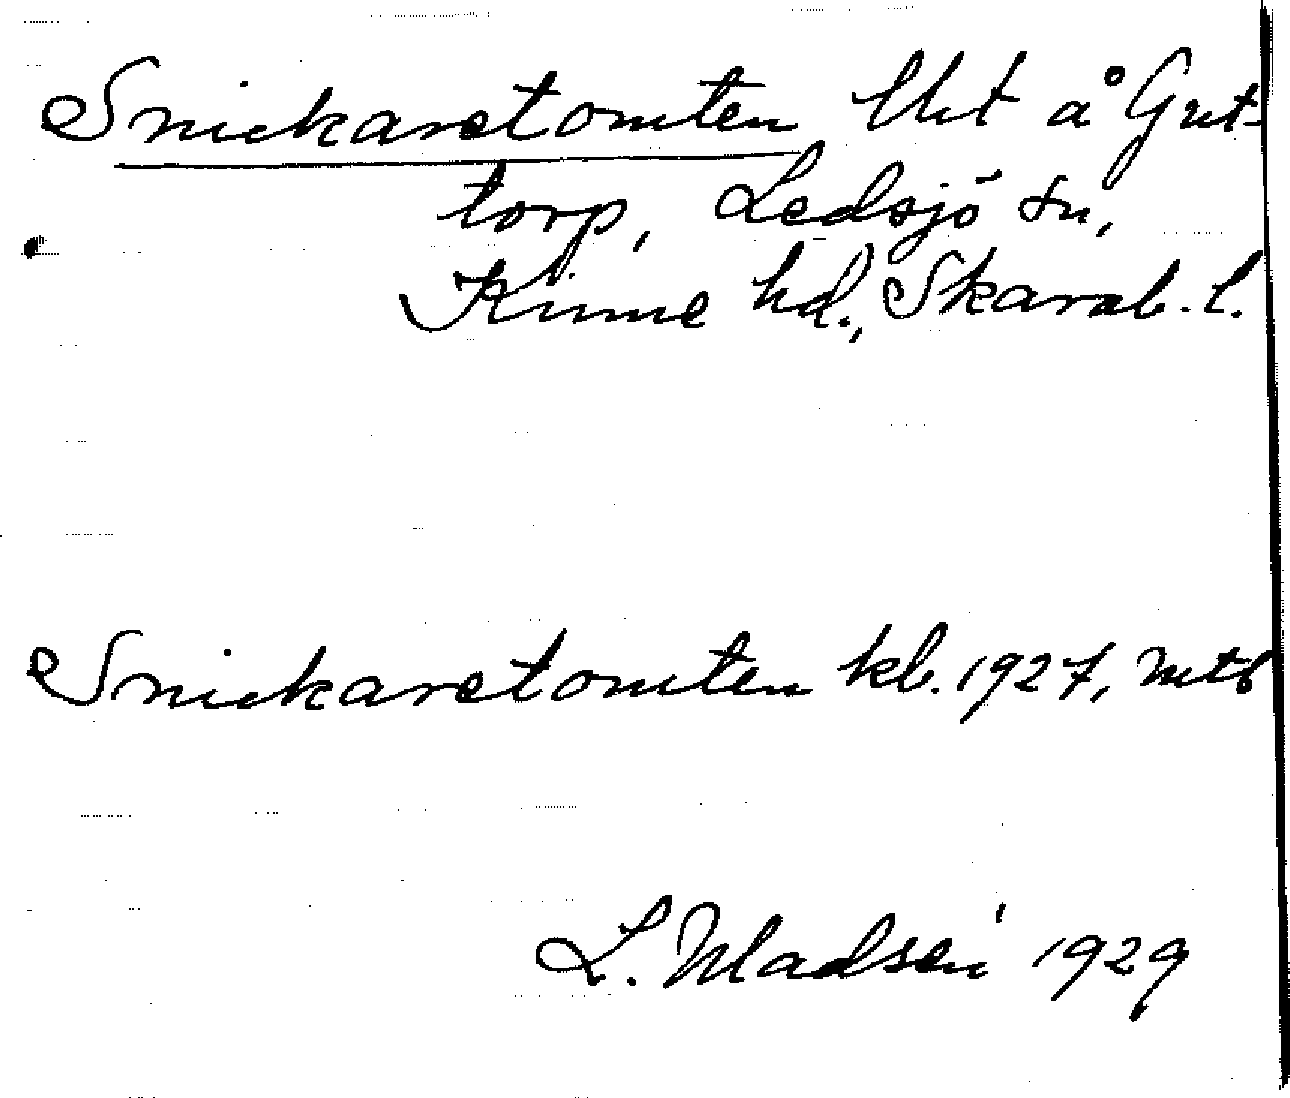 Snickaretomten lht å Gut-
torp, Ledsjö sn,
Kinne hd., Skarab. l.
Snickaretomten kb. 1927, mtb
L. Madsén 1929